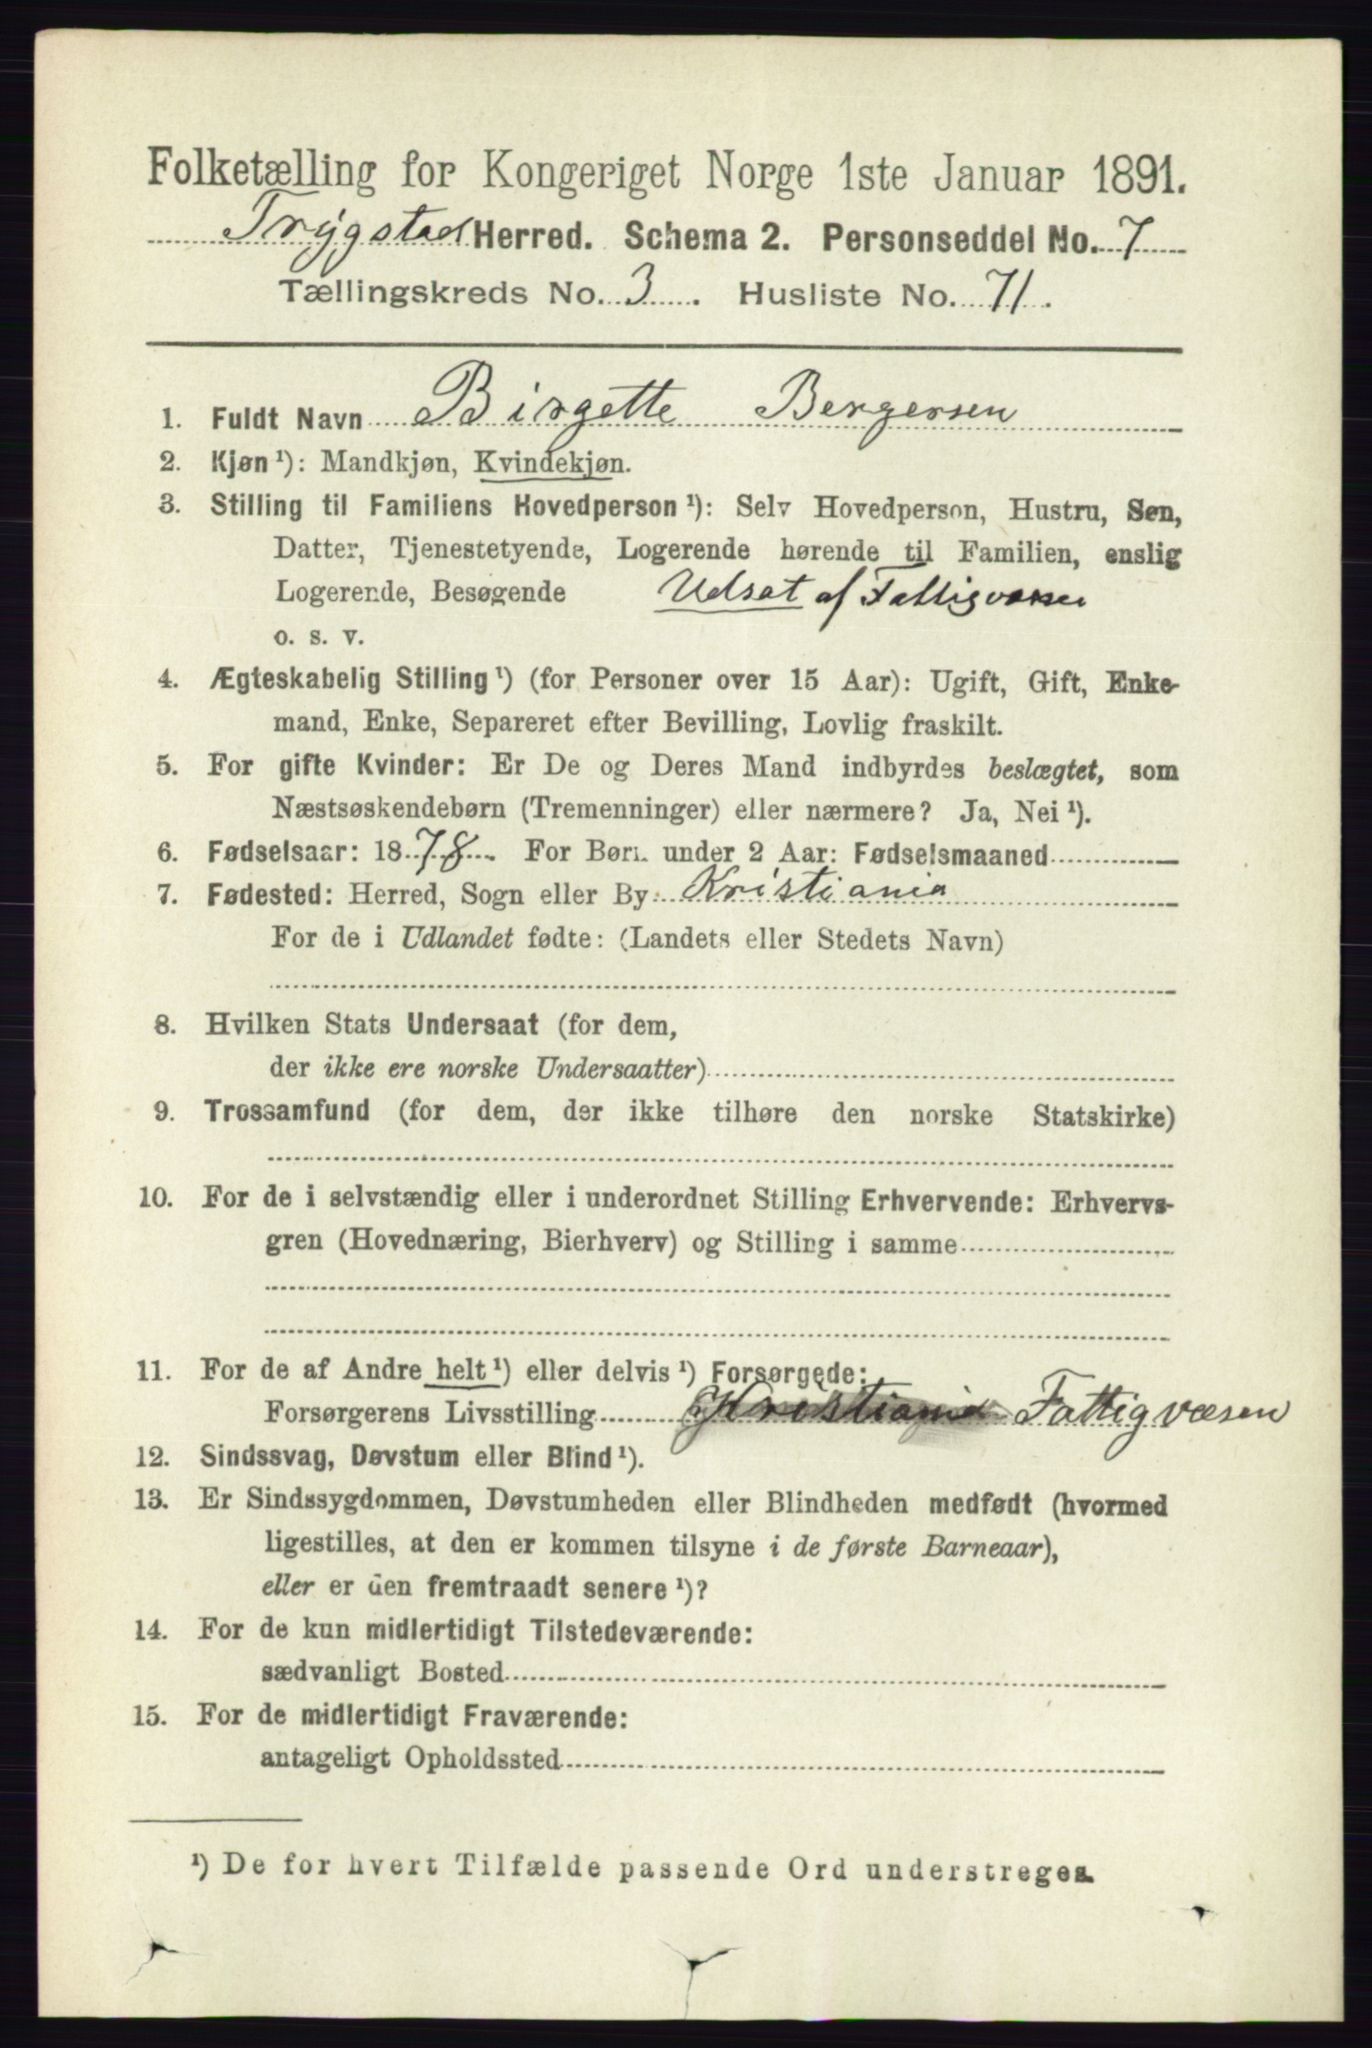 Folketælling for Kongeriget Norge 1ste Januar 1891.
Trygstad Herred. Schema 2. Personseddel No. 7
Tællingskreds No. 3. Husliste No. 71.
1. Fuldt Navn Birgette Bergersen
2. Kjøn ¹): Mandkjøn, Kvindekjøn.
3. Stilling til Familiens Hovedperson ¹): Selv Hovedperson, Hustru, Søn,
Datter, Tjenestetyende, Logerende hørende til Familien, enslig
Logerende, Besøgende Udsat af Fattigvæsen
o. s. v.
4. Ægteskabelig Stilling ¹) (for Personer over 15 Aar): Ugift, Gift, Enke-
mand, Enke, Separeret efter Bevilling, Lovlig fraskilt.
5. For gifte Kvinder: Er De og Deres Mand indbyrdes beslægtet, som
Næstsøskendebørn (Tremenninger) eller nærmere? Ja, Nei ¹).
6. Fødselsaar: 1878. For Børn under 2 Aar: Fødselsmaaned
7. Fødested: Herred, Sogn eller By Kristiania
For de i Udlandet fødte: (Landets eller Stedets Navn)
8. Hvilken Stats Undersaat (for dem,
der ikke ere norske Undersaatter)
9. Trossamfund (for dem, der ikke tilhøre den norske Statskirke)
10. For de i selvstændig eller i underordnet Stilling Erhvervende: Erhvervs-
gren (Hovednæring, Bierhverv) og Stilling i samme
11. For de af Andre helt ¹) eller delvis ¹) Forsørgede:
Forsørgerens Livsstilling Kristiania Fattigvæsen
12. Sindssvag, Døvstum eller Blind ¹).
13. Er Sindssygdommen, Døvstumheden eller Blindheden medfødt (hvormed
ligestilles, at den er kommen tilsyne i de første Barneaar),
eller er den fremtraadt senere ¹)?
14. For de kun midlertidigt Tilstedeværende:
sædvanligt Bosted
15. For de midlertidigt Fraværende:
antageligt Opholdssted
¹) De for hvert Tilfælde passende Ord understreges.